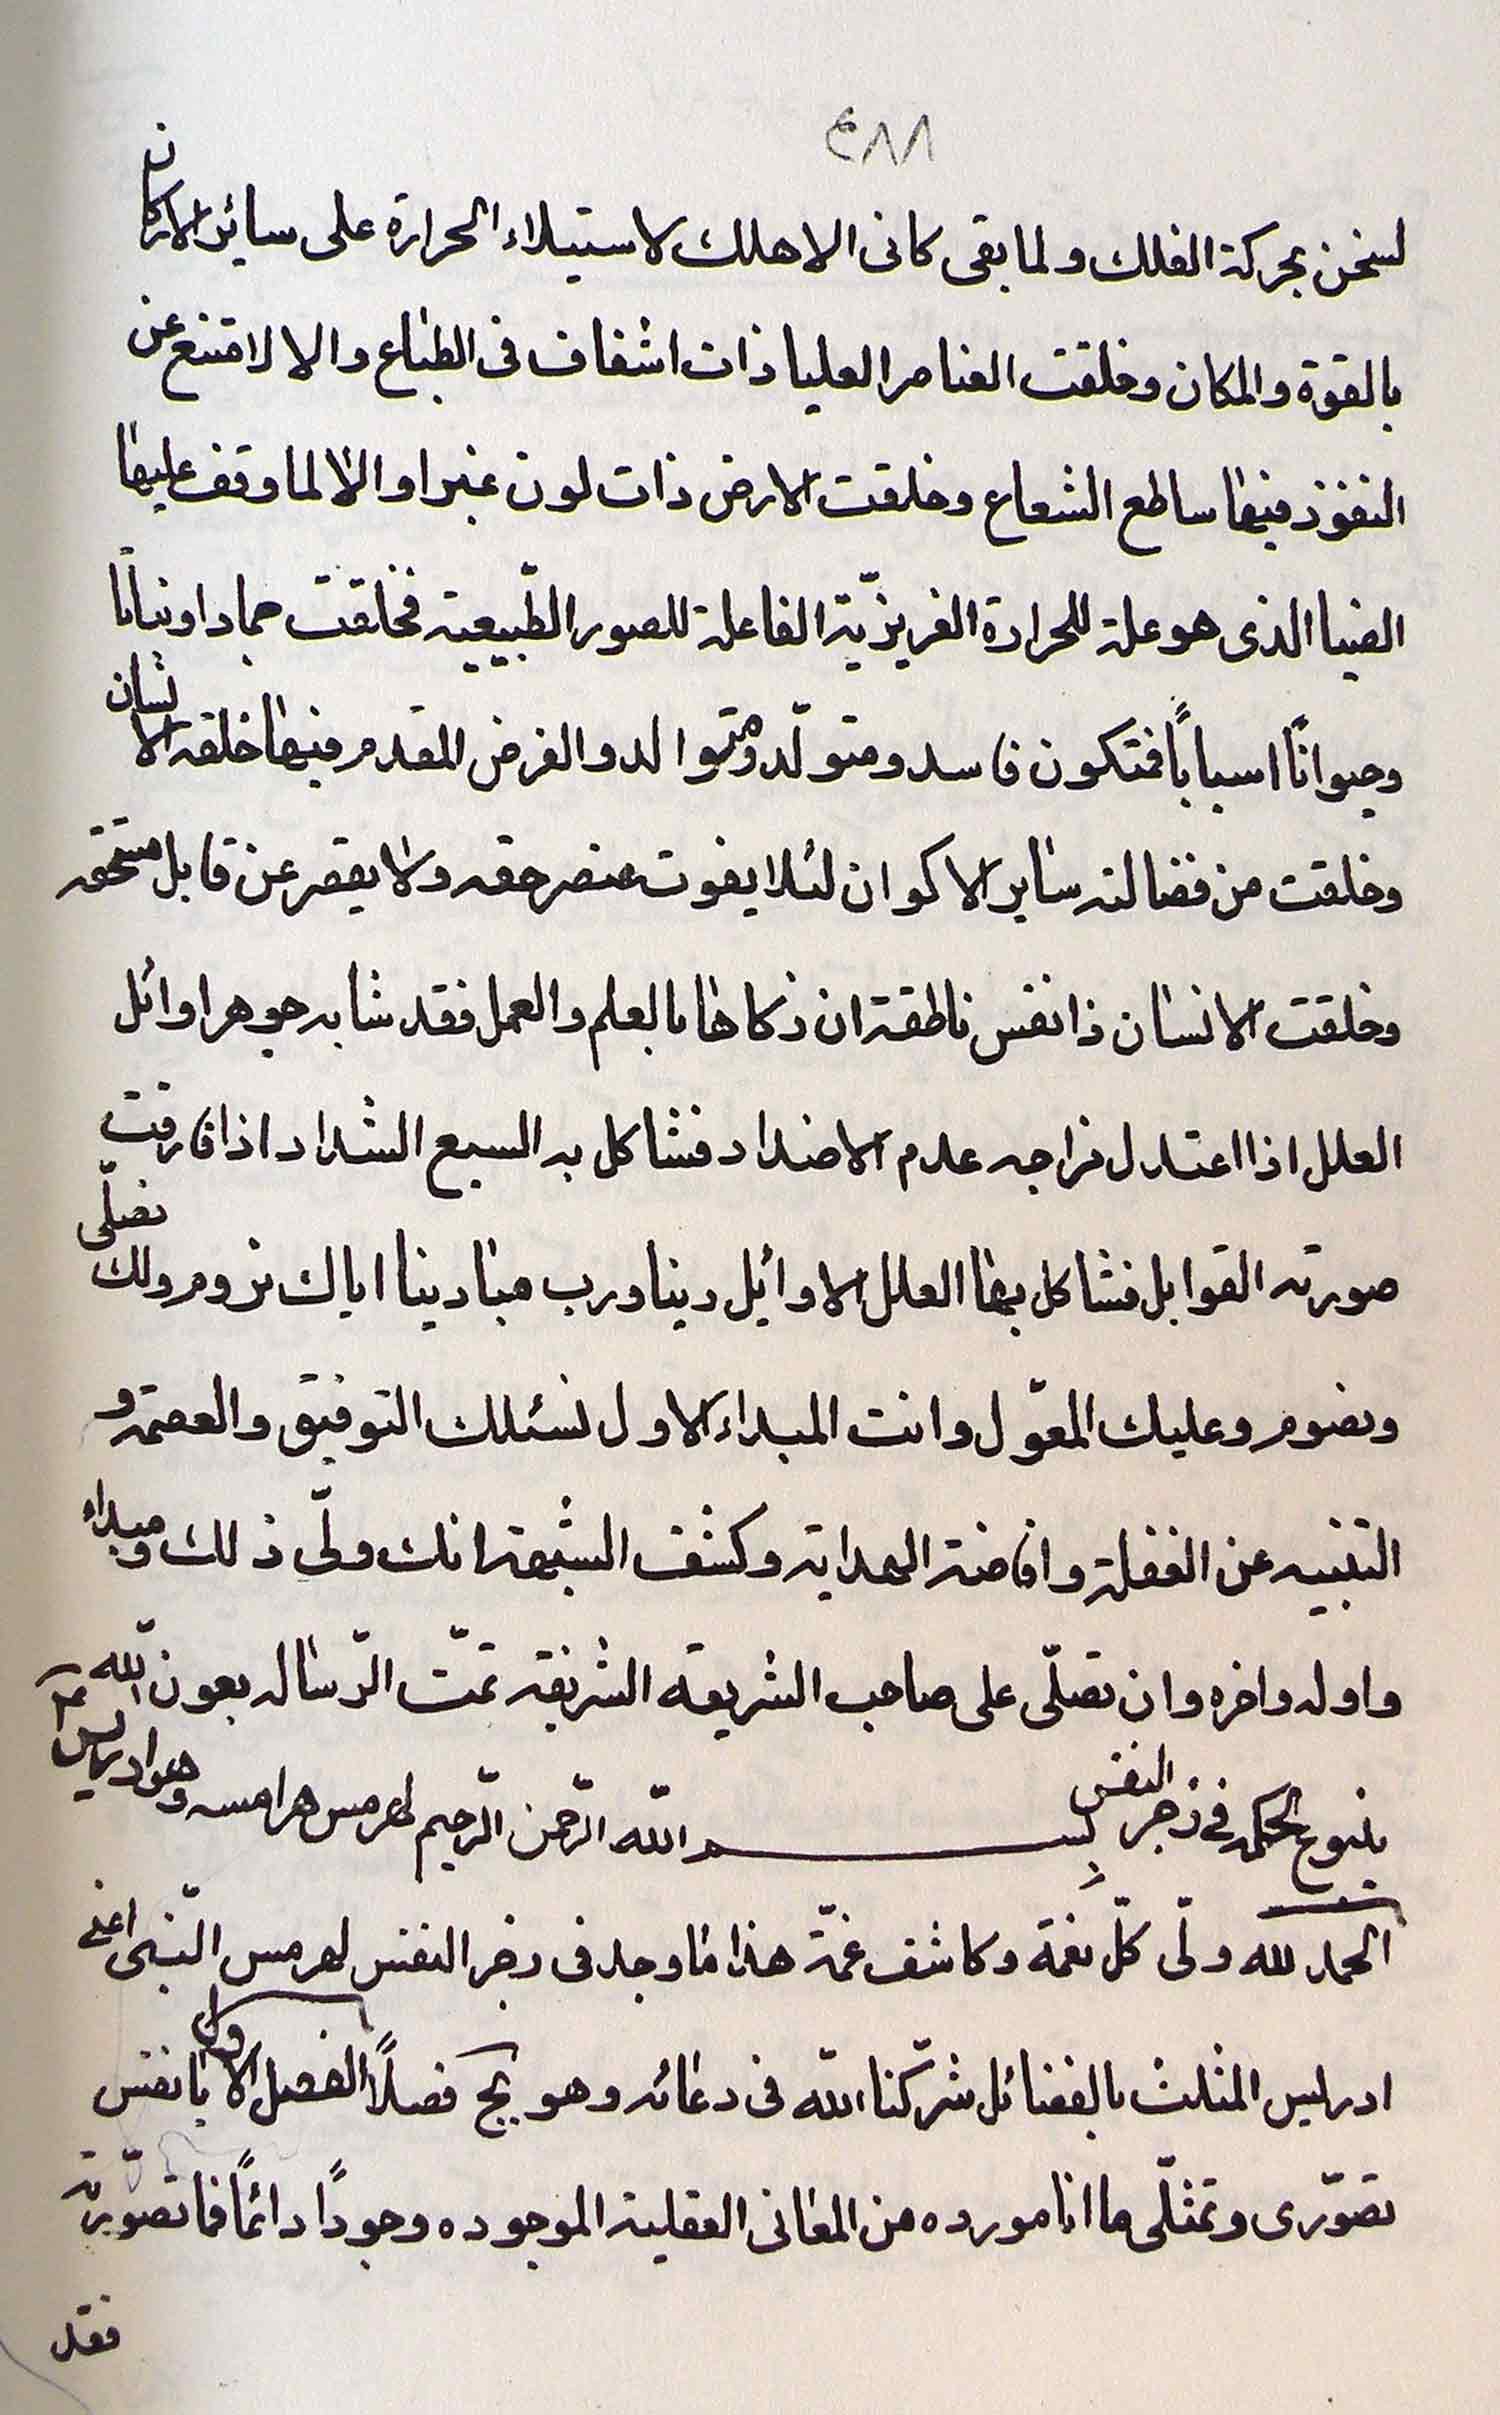 ٤٨٨
لسخن بحركة الفلك ولما بقى كائن الا هلك لاستيلاء الحرارة على سائر الاركان
بالقوة والمكان وخلقت العناصر العليا ذات اشفاف فى الطباع والا لامتنع عن
النفوذ فيها ساطع الشعاع وخلقت الارض ذات لون غبرا والا لما وقف عليها
الضيا الذى هو علة للحرارة الغريزيّة الفاعلة للصور الطّبيعية فخلقت جمادا ونباتا
وحيوانًا اسبابًا فمتكون فاسد ومتولّد ومتوالد والغرض المقدم فيها خلقه الانسان
وخلقت من فضالته ساير الاكوان لئلا يفوت عنصر حقه ولا يقصر عن قابل مستحقه
وخلقت الانسان ذا نفس ناطقة ان زكاها بالعلم والعمل فقد شابه جوهر اوائل
العلل اذا اعتدل مزاجه عدم الاضداد فشاكل به السبع الشداد اذا فارقت
صورته القوابل فشاكل بها العلل الاوايل ربنا ورب مبادينا اياك نروم ولك نصلّى
ونصوم وعليك المعوّل وانت المبداء الاول نسئلك التوفيق والعصمة و
التنبيه عن الغفلة وافاضة الهداية وكشف الشبهة انك ولّى ذلك ومبداء
واوله واخره وان تصلّى على صاحب الشريعه الشريفه تمّت الرّساله بعون اللّه
ينبوع الحكمه فى زجر النفس بسم اللّه الرّحمن الرّحيم لهرمس هرامسه وهو ادريس
الحمد لله ولّى كلّ نعمة وكاشف غمّة هذا ما وجد فى زجر النفس لهرمس النّبى اعنى
ادريس المثلث بالفضائل شرّكنا اللّه فى دعائه وهو يج فصلاً الفصل الاول يا نفس
تصوّرى وتمثلّى ما انا مورده من المعانى العقلية الموجوده وجودًا دائمًا فما تصوّرته
فقد